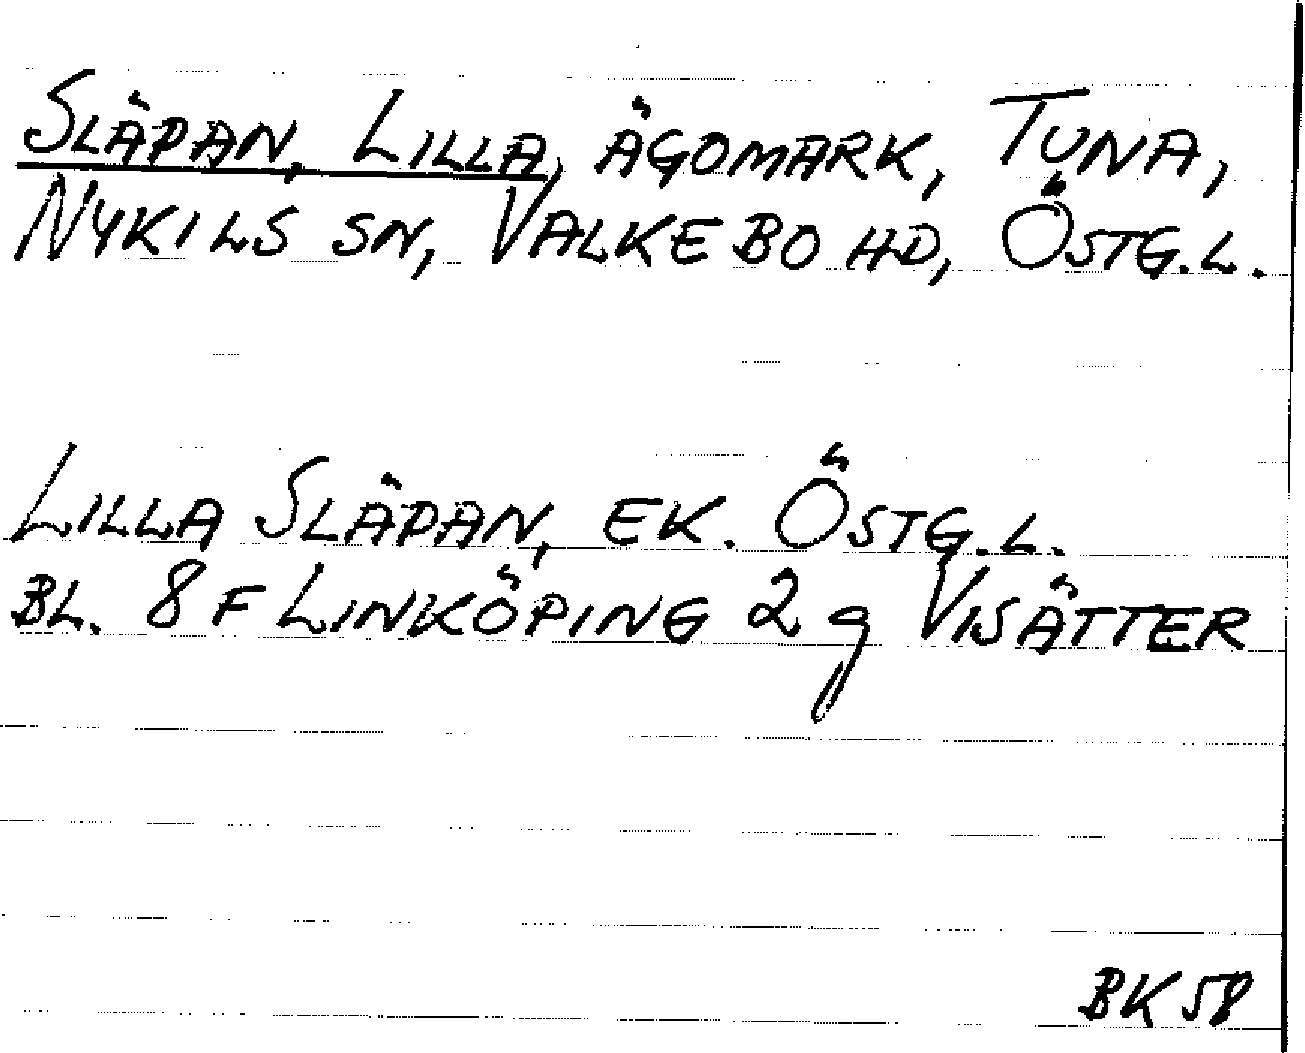 SLÄPAN, LILLA, ÄGOMARK, TUNA,
NYKILS SN, VALKEBO HD, ÖSTG.L.
LILLA SLÄPAN, EK. ÖSTG.L.
BL. 8 F LINKÖPING 2 g VISÄTTER
BK58